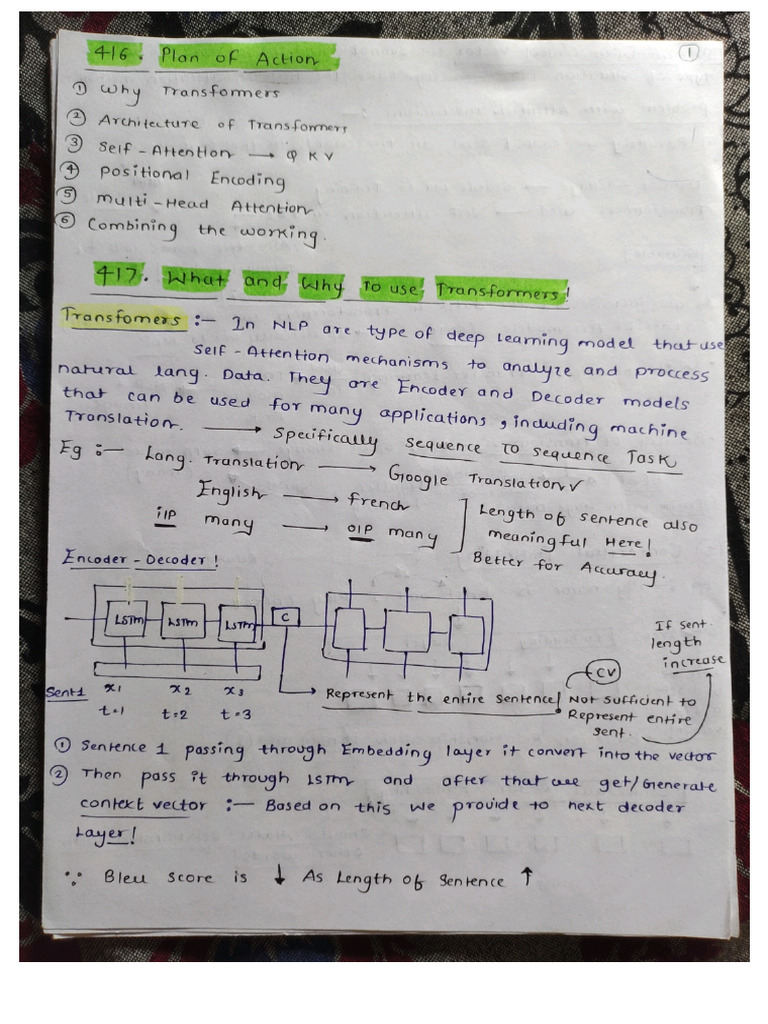 416. Plan of Action
1
① Why Transformers
② Architecture of Transformers
③ Self-Attention → Q K V
④ Positional Encoding
⑤ Multi-Head Attention
⑥ Combining the working.
417. What and Why To use Transformers!
Transfomers :— In NLP are type of deep learning model that use
Self-Attention mechanisms to analyze and proccess
natural lang. Data. They are Encoder and Decoder models
that can be used for many applications, including machine
Translation. → Specifically sequence to sequence Task
Eg :— Lang. Translation → Google Translation ✓
English → French
i/p many → O/P many
Length of sentence also
meaningful Here!
Better for Accuracy.
Encoder-Decoder!
LSTM LSTM LSTM C
If sent.
length
increase
Sent1 x1 x2 x3
t=1 t=2 t=3
Represent the entire sentence!
CV
Not sufficient to
Represent entire
sent.
① Sentence 1 passing through Embedding layer it convert into the vector
② Then pass it through LSTM and after that we get/Generate
context vector :— Based on this we provide to next decoder
Layer!
∵ Bleu score is ↓ As Length of sentence ↑